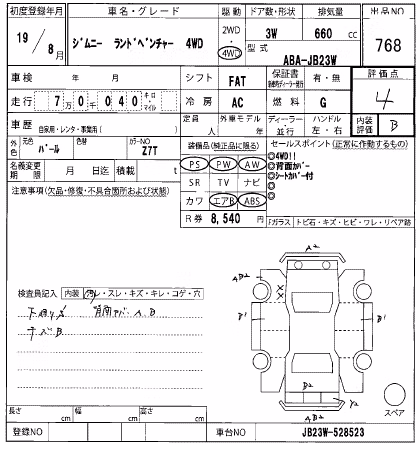 初度登録年月 車名・グレード 駆動 ドア数・形状 排気量 出品NO
19/8月 ジムニー ランドベンチャー 4WD 2WD・4WD 3W 660 cc 768
型式 ABA-JB23W
車検 年 月 シフト FAT 保証書 有・無 評価点
走行 7万0千040 キロ・マイル 冷房 AC 燃料 G 4
車歴 自家用・レンタ・事業用( ) 定員 人 外車モデル 年 ディーラー・並行 ハンドル 左・右 内装評価 B
外色 元色 パール 色替 カラーNO Z7T
装備品(純正品に限る) セールスポイント(正常に作動するもの)
名義変更期限 月 日迄 積載 t
PS PW AW ◎4WD!!
◎背面カバー
SR TV ナビ ◎シートカバー付
◎
カワ エアB ABS ◎
注意事項(欠品・修復・不具合箇所および状態)
R券 8,540 円
Fガラス トビ石・キズ・ヒビ・ワレ・リペア跡
検査員記入 内装 汚レ・スレ・キズ・キレ・コゲ・穴
下廻りサビ 背面カバーA.B
キズB
A2
AB2
XX
B1
B1
B2
Y2
AB2
スペア
長さ cm 幅 cm 高さ cm
登録NO 車台NO JB23W-528523